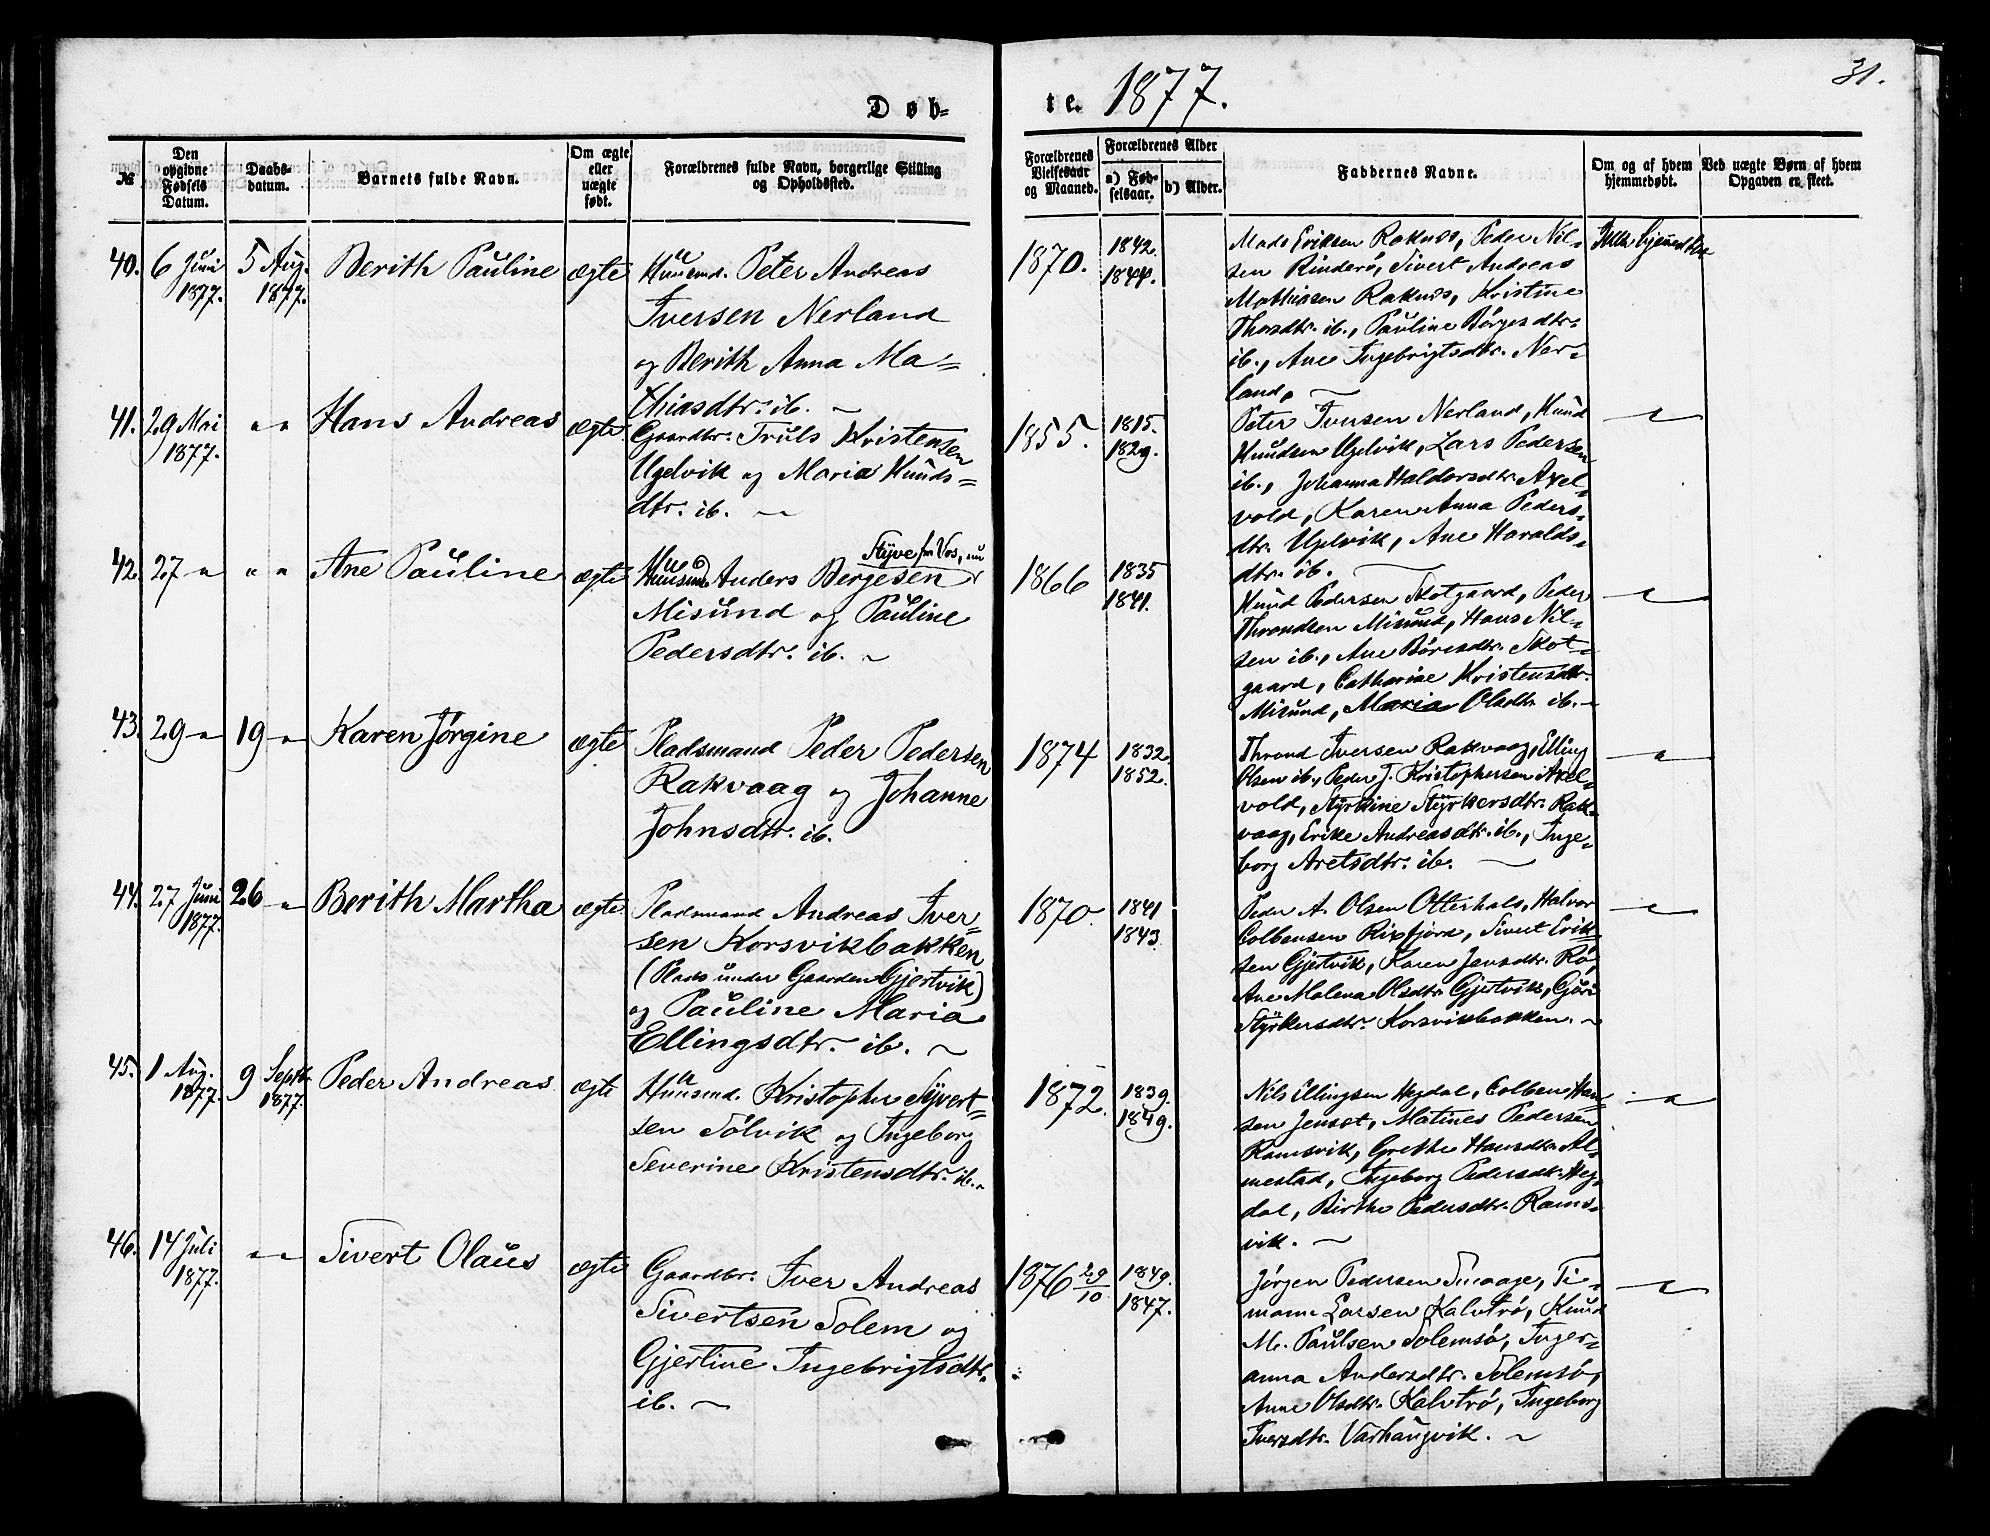 Døb-
te. 1877.
31.
№
Den opgivne Fødsels Datum.
Daabs-datum.
Barnets fulde Navn.
Om ægte eller uægte født.
Forældrenes fulde Navn, borgerlige Stilling og Opholdssted.
Forældrenes Vielsesaar og Maaned.
Forældrenes Alder
a) Fødselsaar.
b) Alder.
Faddernes Navne.
Om og af hvem hjemmedøbt.
Ved uægte Børn af hvem Opgaven er skeet.
40. 6 Juni 1877. 5 Aug. 1877. Berith Pauline ægte
Huusmd. Peter Andreas
Iversen Nerland
og Berith Anna Ma-
thiasdtr. ib.
1870. 1842. 1844.
Mads Eriksen Raknæs, Peder Nil-
sen Rinderø, Sivert Andreas
Mathiasen Raknæs, Kristine
Thorsdtr. ib., Pauline Børgesdtr.
ib., Ane Ingebrigtsdtr. Ner-
land,
41. 29 Mai 1877. " " Hans Andreas ægte
Gaardbr. Truls Kristensen
Ugelvik og Maria Knuds-
dtr. ib.
1855. 1815. 1829.
Peter Iversen Nerland, Knud
Knudsen Ugelvik, Lars Pedersen
ib., Johanna Haldorsdtr. Axel-
vold, Karen Anna Peders-
dtr. Ugelvik, Ane Haralds-
dtr. ib.
42. 27 " " " Ane Pauline ægte
Styve fra Vos, nu
Huusmd Anders Bergesen
Misund og Pauline
Pedersdtr. ib.
1866 1835 1841.
Knud Pedersen Skotgaard, Peder
Throndsen Misund, Hans Nil-
sen ib., Ane Børresdtr. Skot-
gaard, Catharine Kristensdtr.
Misund, Maria Olsdtr. ib.
43. 29 " 19 " Karen Jørgine ægte
Pladsmand Peder Pedersen
Rakvaag og Johanne
Johnsdtr. ib.
1874 1832. 1852.
Thrond Iversen Rakvaag, Elling
Olsen ib., Peder J. Kristophersen Axel-
vold, Styrkine Styrkersdtr. Rak-
vaag, Erike Andreasdtr. ib., Inge-
borg Aretsdtr. ib.
44. 27 Juni 1877. 26 " Berith Martha ægte
Pladsmand Andreas Iver-
sen Korsvikbakken
(Plads under Gaarden Gjertvik)
og Pauline Maria
Ellingsdtr. ib.
1870. 1841 1843.
Peder A. Olsen Otterhals, Halvor
Colbensen Rixfjord, Sivert Erik-
sen Gjertvik, Karen Jensdtr. Rø,
Ane Malena Olsdtr. Gjertvik, Gjøri
Styrkersdtr. Korsvikbakken.
45. 1 Aug. 1877. 9 Septbr. 1877. Peder Andreas ægte
Huusmd. Kristopher Syvert-
sen Sølvik og Ingeborg
Severine Kristensdtr. ib.
1872. 1839. 1849.
Nils Ellingsen Hegdal, Colben Han-
sen Jenset, Matines Pedersen
Ramsvik, Grethe Hansdtr. Al-
mestad, Ingeborg Pedersdtr. Heg-
dal, Birthe Pedersdtr. Rams-
vik.
46. 14 Juli 1877. " " Sivert Olaus ægte
Gaardbr. Iver Andreas
Sivertsen Solem og
Gjertine Ingebrigtsdtr.
ib.
1876 29/10 1849. 1847.
Jørgen Pedersen Smaage, Ti-
mann Larsen Kalvtrø, Knud
M. Paulsen Solemsø, Inger-
anna Andersdtr. Solemsø,
Anne Olsdtr. Kalvtrø, Ingeborg
Iversdtr. Varhaugvik.